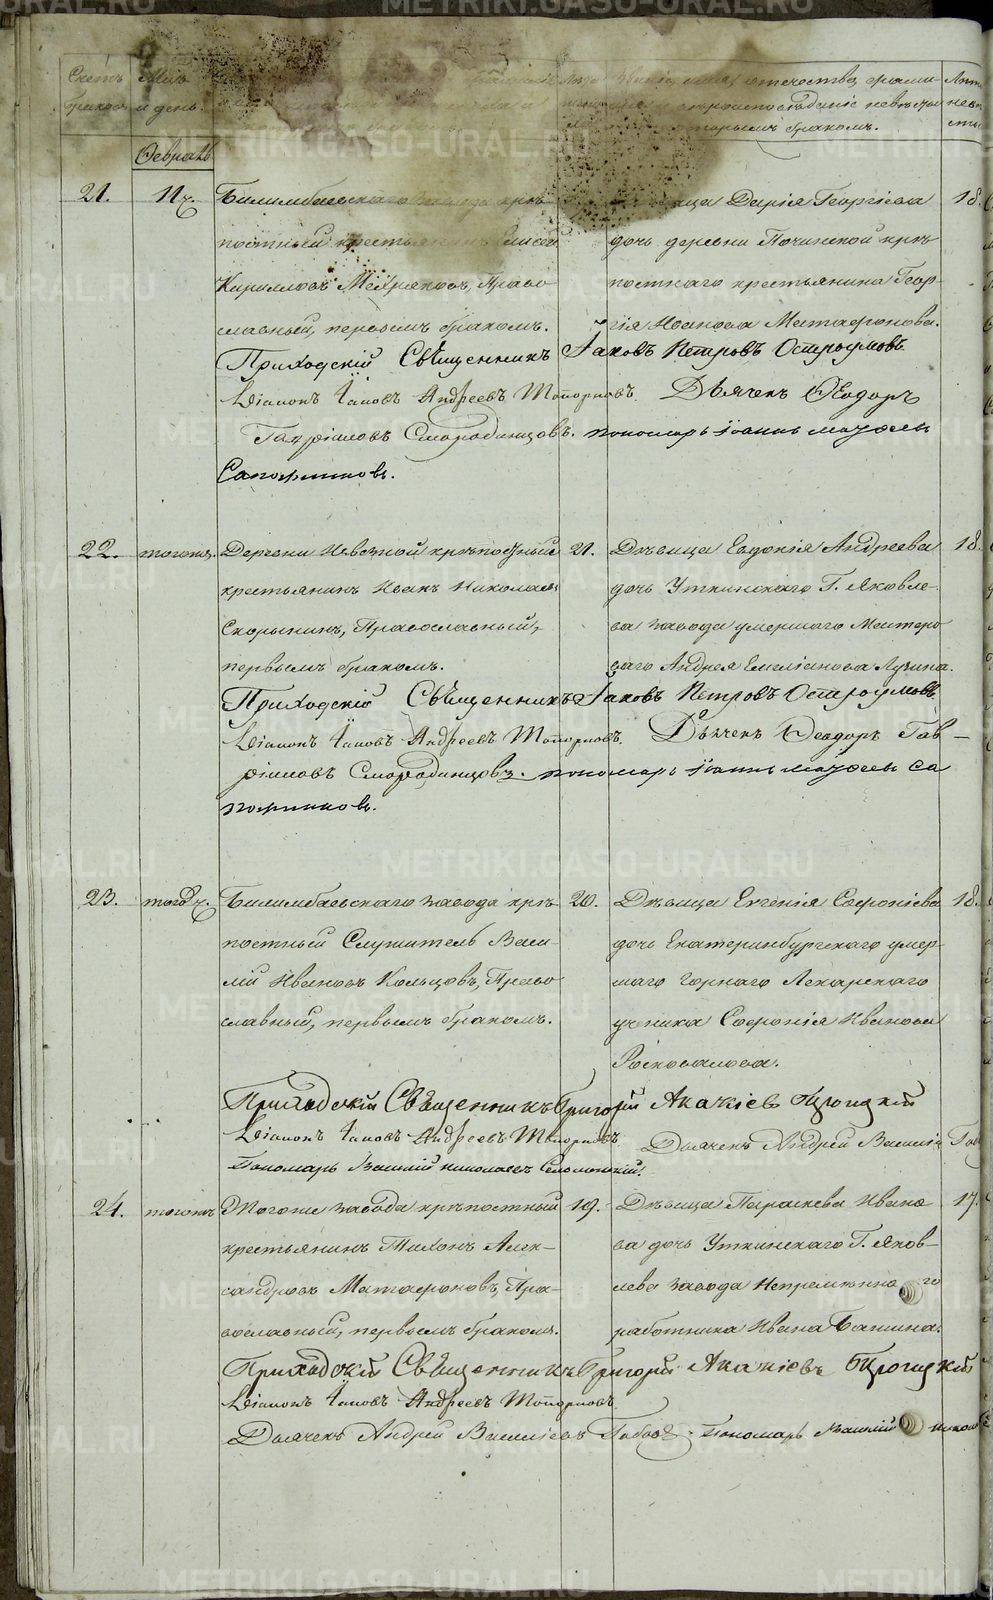 Счетъ
браков
Мсц
и день.
Званіе, имя, отечество, фами-
и вѣроисповѣданіе невѣсты
которымъ бракомъ.
Лѣта
невѣ
сты
Февраль
21.
11ч.
Билимбаевскаго завода крѣ-
постный крестьянинъ
Кирилловъ Мехряковъ, Право-
славный, первымъ бракомъ.
Дарія Георгіева
дочь деревни Починской крѣ-
постнаго крестьянина Геор-
гія Иванова Матафонова.
18.
Приходскій Священникъ Іаковъ Петровъ Остроумовъ
Діаконъ Іаковъ Андреевъ Топорковъ. Дьячекъ Ѳеодоръ
Гавріиловъ Смородинцовъ. пономарь Іоаннъ
Сапожниковъ.
22.
тогожъ.
Деревни Извозной крѣпостный
крестьянинъ Иванъ Николаевъ
Скорынинъ, Православный,
первымъ бракомъ.
21.
Дѣвица Евдокія Андреева
дочь Уткинскаго Г. Яковле-
ва завода умершаго Мастеро-
ваго Андрея Емеліанова Лузина.
18.
Приходскій Священникъ Іаковъ Петровъ Остроумовъ
Діаконъ Іаковъ Андреевъ Топорковъ. Дьячекъ Ѳеодоръ Гав-
ріиловъ Смородинцовъ. пономарь Іоаннъ Са
пожниковъ.
23.
тогож.
Билимбаевскаго завода крѣ-
постный Служитель Васи-
лій Ивановъ Кольцовъ, Право-
славный, первымъ бракомъ.
20.
Дѣвица Евгенія Софроніева
дочь Екатеринбургскаго умер-
шаго Горнаго Лекарскаго
ученика Софронія Иванова
18.
Приходскій Священникъ Григорій Акакіевъ Троицкій
Діаконъ Іаковъ Андреевъ Топорковъ
Дьячекъ Андрей Василіевъ
Пономарь Василій Николаевъ
24.
тогожъ
Тогоже завода крѣпостный
крестьянинъ Тихонъ Алек-
сандровъ Матафоновъ, Пра-
вославный, первымъ бракомъ.
19.
Дѣвица Параскева Ивано-
ва дочь Уткинскаго Г. Яков-
лева завода Непремѣннаго
работника Ивана Башина.
17.
Приходскій Священникъ Григорій Акакіевъ Троицкій
Діаконъ Іаковъ Андреевъ Топорковъ
Дьячекъ Андрей Василіевъ Пономарь Василій
METRIKI.GASO-URAL.RU